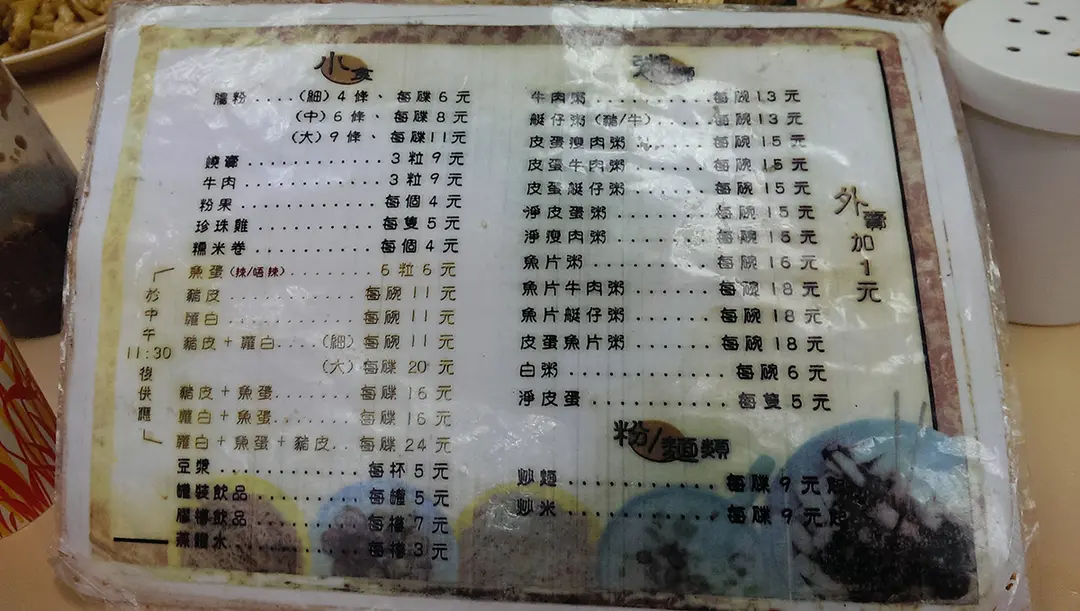 小食
腸粉....(細)4條、每碟6元
(中)6條、每碟8元
(大)9條、每碟11元
燒賣............3粒9元
牛肉............3粒9元
粉果............每個4元
珍珠雞............每隻5元
糯米卷............每個4元
魚蛋(辣/唔辣).........6粒6元
豬皮............每碗11元
蘿白............每碗11元
豬皮+蘿白....(細)每碗11元
(大)每碟20元
豬皮+魚蛋........每碟16元
蘿白+魚蛋........每碟16元
蘿白+魚蛋+豬皮..每碟24元
於中午11:30後供應
豆漿............每杯5元
罐裝飲品............每罐5元
膠樽飲品............每樽7元
蒸餾水............每樽3元
粥
牛肉粥............每碗13元
艇仔粥(豬/牛).......每碗13元
皮蛋瘦肉粥........每碗15元
皮蛋牛肉粥........每碗15元
皮蛋艇仔粥........每碗15元
淨皮蛋粥..........每碗15元
淨瘦肉粥..........每碗15元
魚片粥............每碗16元
魚片牛肉粥........每碗18元
魚片艇仔粥........每碗18元
皮蛋魚片粥........每碗18元
白粥............每碗6元
淨皮蛋............每隻5元
外賣加1元
粉/麵類
炒麵............每碟9元起
炒米............每碟9元起